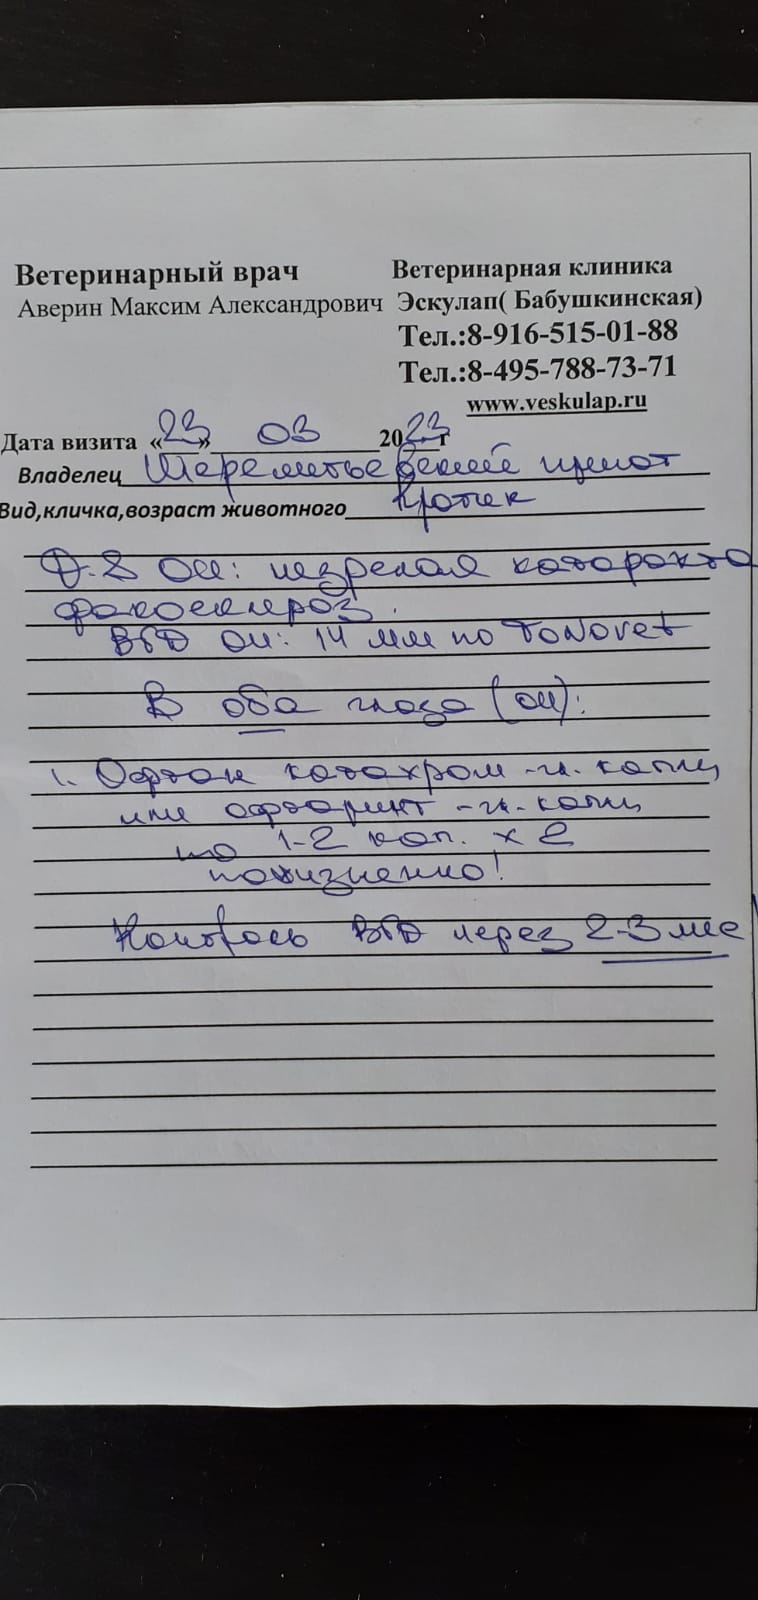 Ветеринарный врач Ветеринарная клиника
Аверин Максим Александрович Эскулап( Бабушкинская)
Тел.:8-916-515-01-88
Тел.:8-495-788-73-71
www.veskulap.ru
Дата визита «23» 03 2023г
Владелец Шереметьевский приют
Вид,кличка,возраст животного Кротик
Д-S ОИ: незрелая катаракта
факосклероз.
ВГД ОИ: 14 мм по TONOvet
В оба глаза (ОИ):
1. Офтан катахром -гл. капли
или офтаринт -гл. капли
по 1-2 кап. х 2
пожизненно!
Контроль ВГД через 2-3 мес